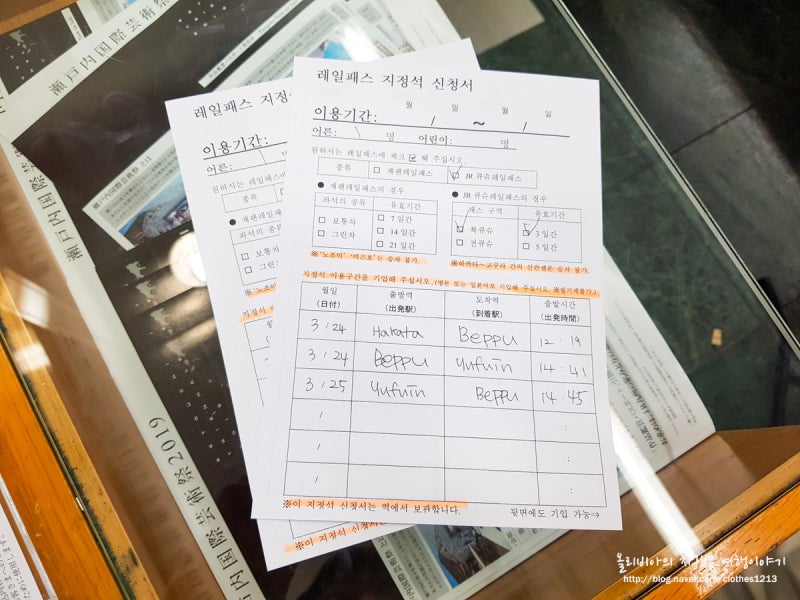 레일패스 지정석 신청서
월 일 월 일
이용기간: / ~ /
어른: \ 명 어린이: 명
원하시는 레일패스에 체크 ☑ 해 주십시오.
종류 □ 재팬레일패스 ☑ JR 큐슈레일패스
● 재팬레일패스의 경우
좌석의 종류 유효기간
□ 보통차 □ 7 일간
□ 그린차 □ 14 일간
□ 21 일간
※'노조미' '미즈호'는 승차 불가.
● JR 큐슈레일패스의 경우
패스 구역 유효기간
☑ 북큐슈 ☑ 3 일간
□ 전큐슈 □ 5 일간
※하카타~고쿠라 간의 신칸센은 승차 불가.
지정석 이용구간을 기입해 주십시오.(영문 또는 일본어로 기입해 주십시오.※필기체불가.)
월일 출발역 도착역 출발시간
(日付) (出発駅) (到着駅) (出発時間)
3 / 24 Hakata Beppu 12 : 19
3 / 24 Beppu Yufuin 14 : 41
3 / 25 Yufuin Beppu 14 : 45
/ :
/ :
/ :
※이 지정석 신청서는 역에서 보관합니다.
뒷면에도 기입 가능⇒
레일패스 지정
이용기간:
어른: \ 명
원하시는 레일패스에
종류
● 재팬레일패
좌석의 종류
□ 보통차
□ 그린차
※'노조미'
지정석 이
※이 지정석 신청서는
瀬戸内国際芸術祭
瀬戸内国際芸術祭 2019
瀬戸内国際芸術祭とは
올리비아의 여행이야기
http://blog.naver.com/clothes1213